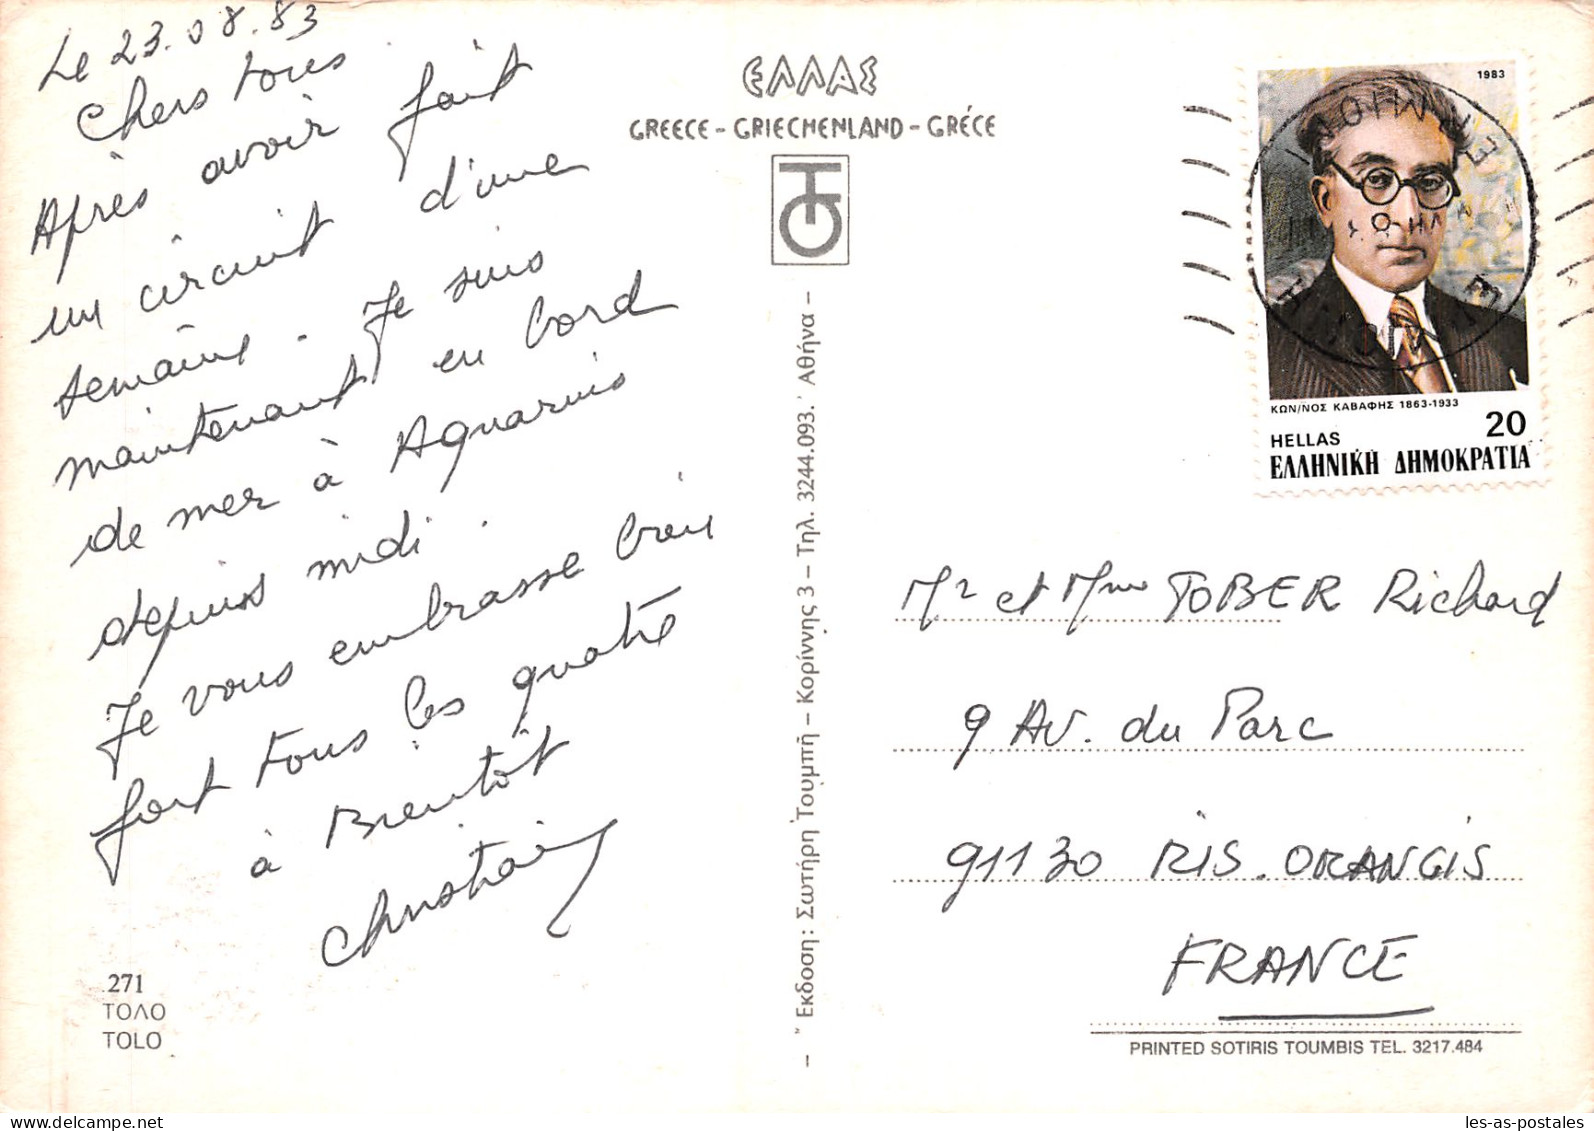 Le 23.08.83
Chers tous
Après avoir fait
un circuit d'une
semaine. Je suis
maintenant en bord
de mer à Aquarius
depuis midi.
Je vous embrasse bien
fort tous les quatre
à Bientôt
Christiane
271
ΤΟΛΟ
TOLO
ΕΛΛΑΣ
GREECE - GRIECHENLAND - GRÉCE
— " Εκδοση: Σωτήρη Τουμπή – Κορίννης 3 – Τηλ. 3244.093. ' Αθήνα –
1983
ΚΩΝ/ΝΟΣ ΚΑΒΑΦΗΣ 1863-1933
20
HELLAS
ΕΛΛΗΝΙΚΗ ΔΗΜΟΚΡΑΤΙΑ
Mr et Mme TOBER Richard
9 Av. du Parc
91130 RIS.ORANGIS
FRANCE
PRINTED SOTIRIS TOUMBIS TEL. 3217.484
les-as-postales
delcampe.net